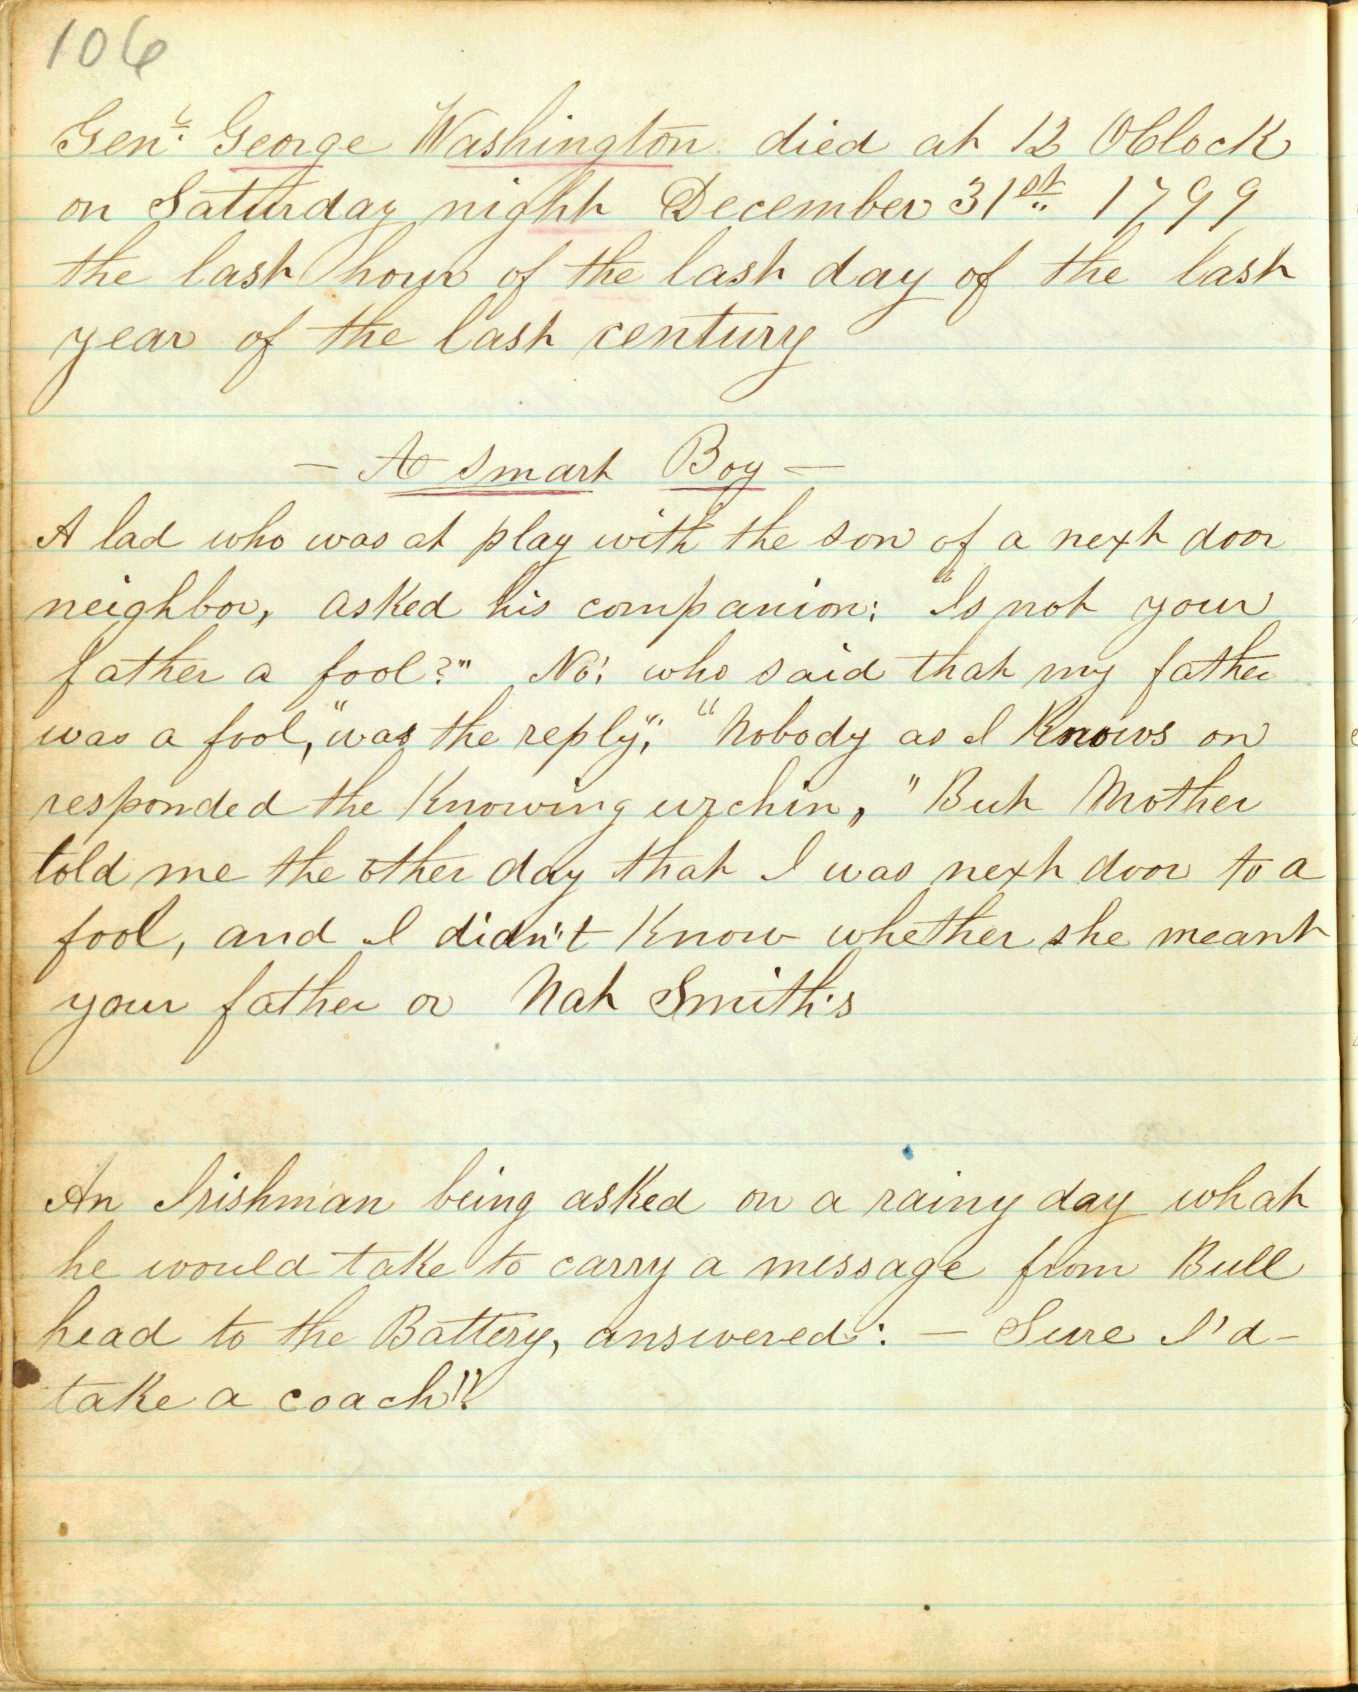 106
Genl. George Washington died at 12 OClock
on Saturday night December 31st 1799
the last hour of the last day of the last
year of the last century
— A Smart Boy —
A lad who was at play with the son of a next door
neighbor, asked his companion: "Is not your
father a fool?" No! who said that my father
was a fool," was the reply"; "Nobody as I Knows on
responded the Knowing urchin, "But Mother
told me the other day that I was next door to a
fool, and I didn't Know whether she meant
your father or Nat Smith's
An Irishman being asked on a rainy day what
he would take to carry a message from Bull
head to the Battery, answered: — Sure I'd
take a coach"!